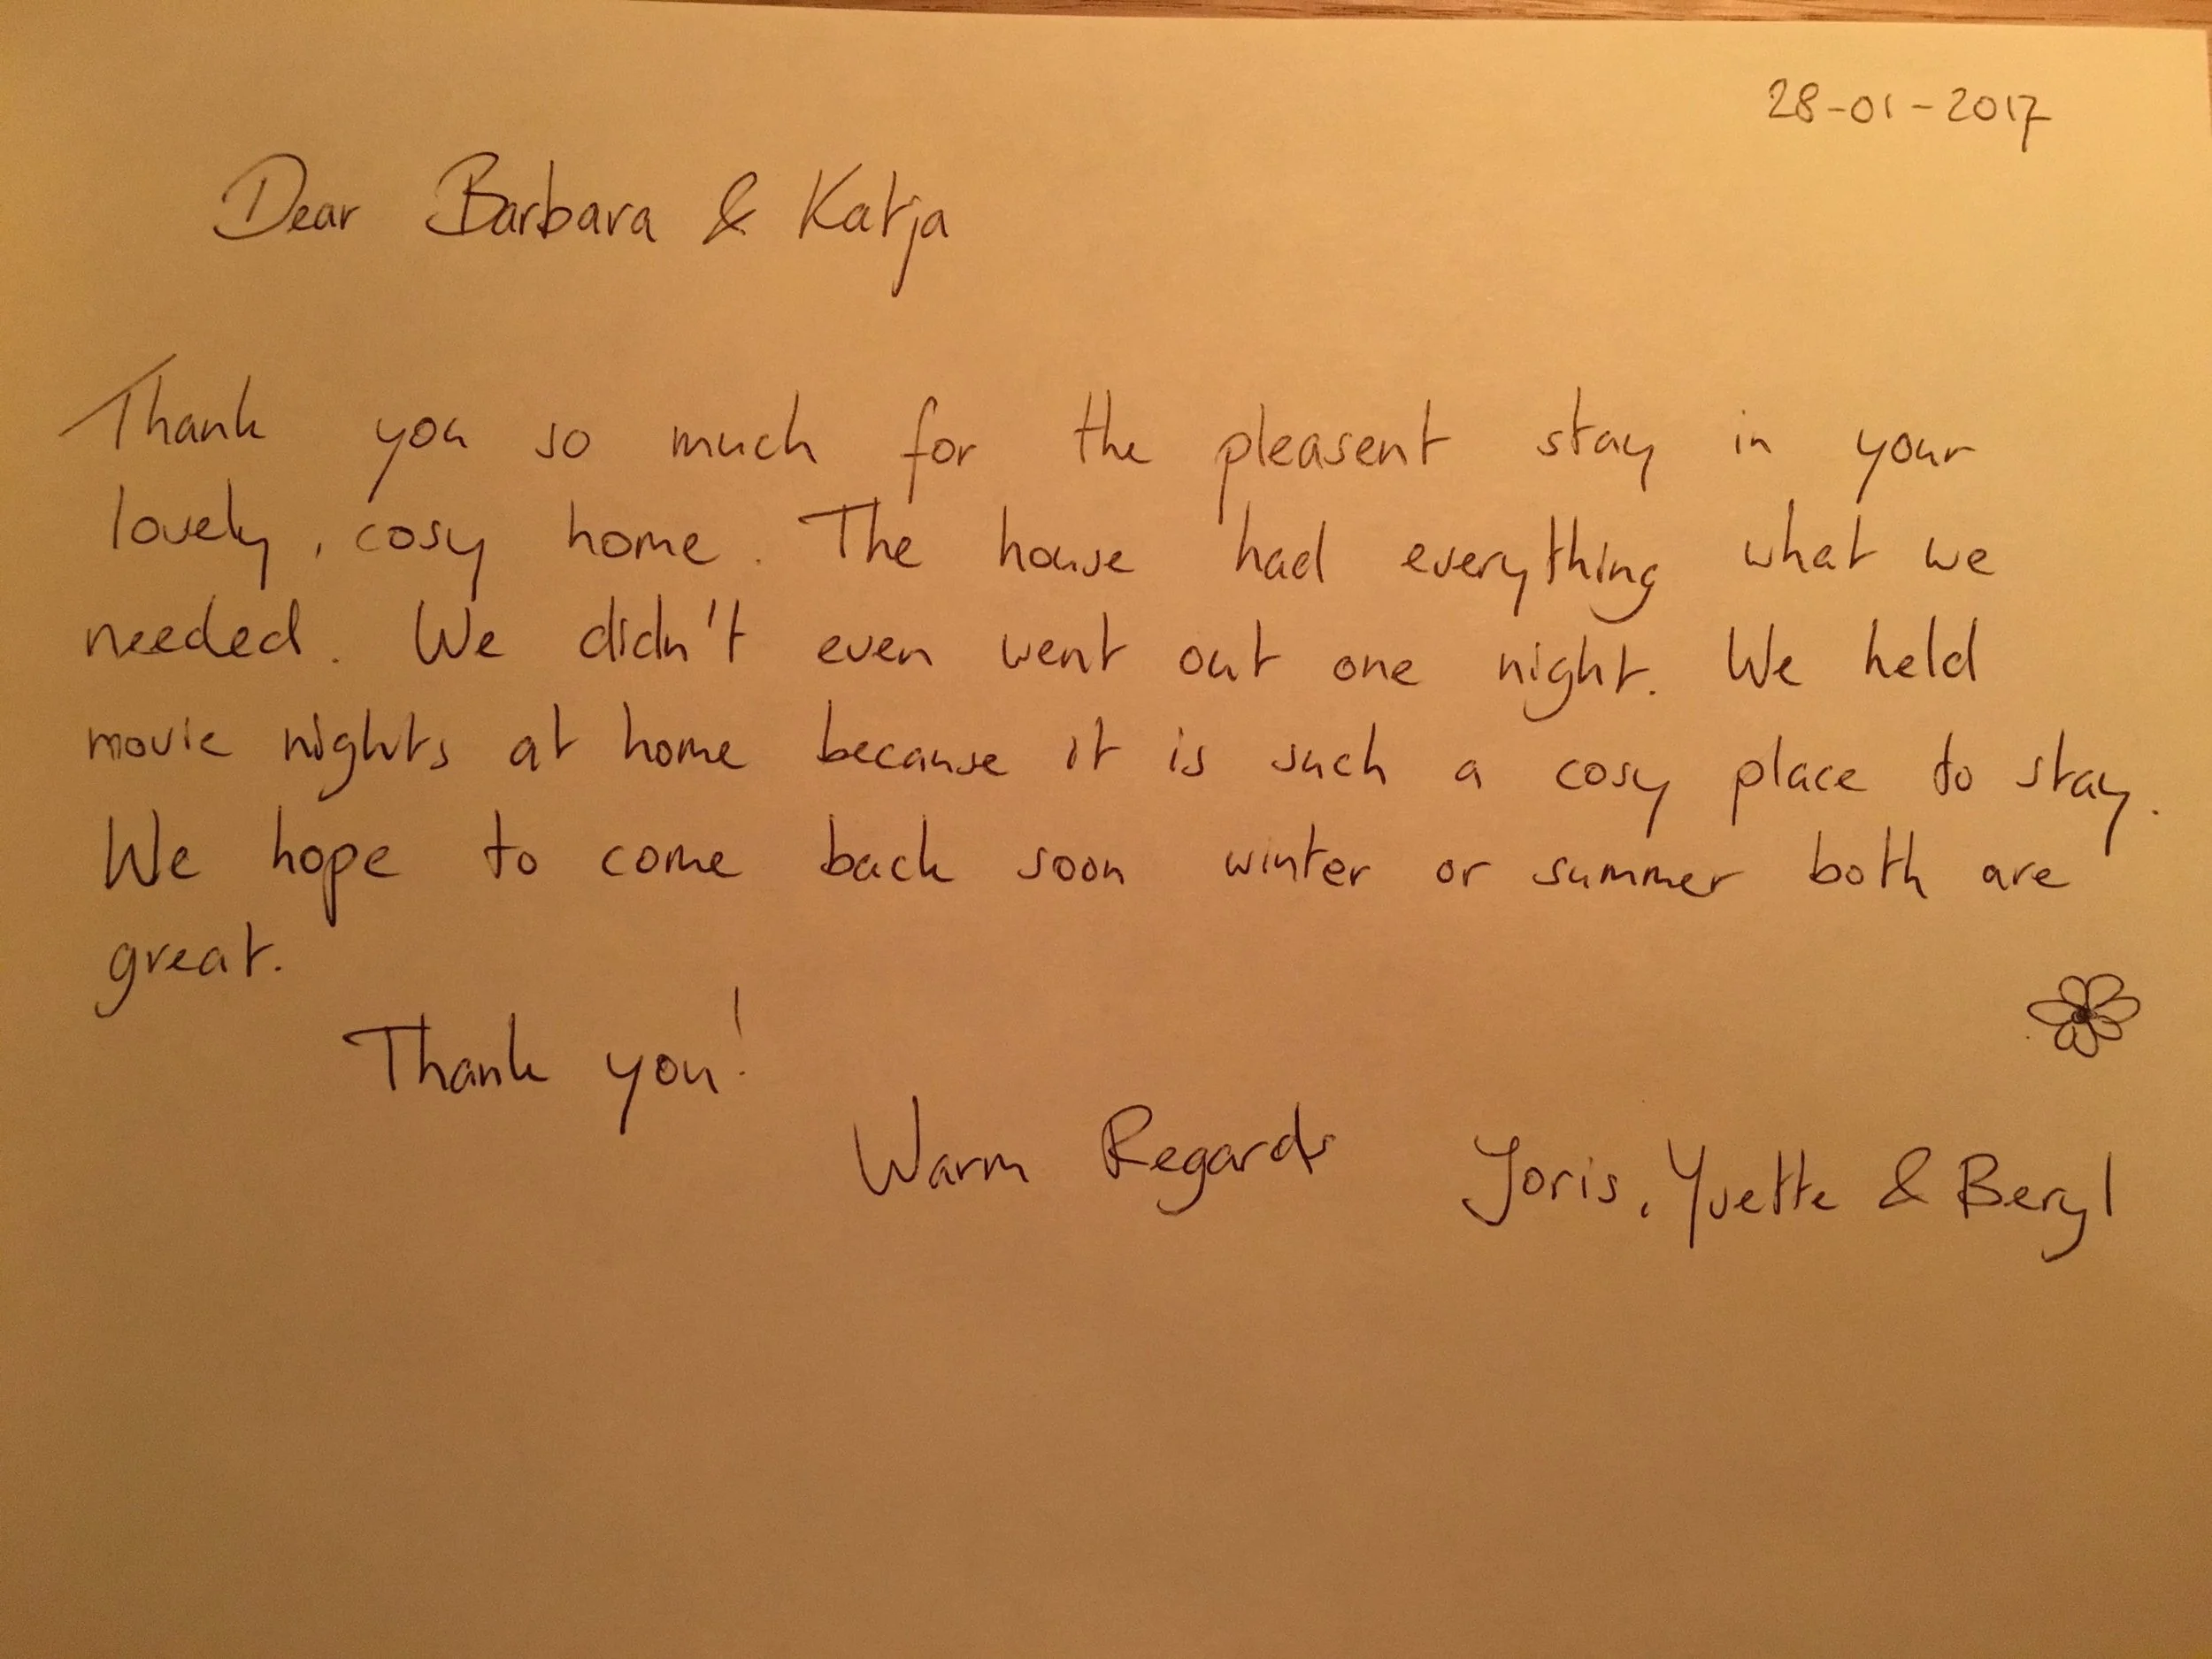 28-01-2017
Dear Barbara & Katja
Thank you so much for the pleasent stay in your
lovely, cosy home. The house had everything what we
needed. We didn't even went out one night. We held
movie nights at home because it is such a cosy place to stay.
We hope to come back soon winter or summer both are
great.
Thank you!
Warm Regards Joris, Yvette & Beryl